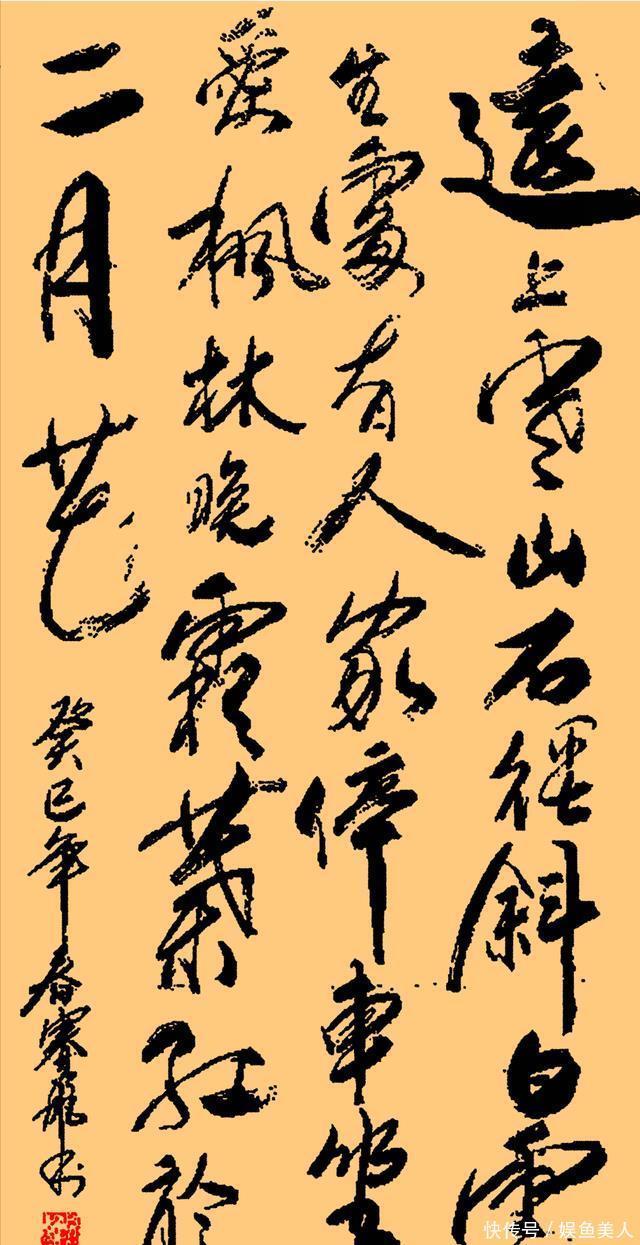 遠上寒山石徑斜白雲
生處有人家停車坐
愛楓林晚霜葉紅於
二月花
癸巳年春
快传号/娱鱼美人